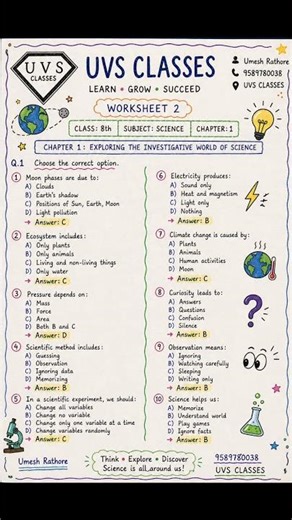 UVS
CLASSES
UVS CLASSES
LEARN • GROW • SUCCEED
WORKSHEET 2
Umesh Rathore
9589780038
UVS CLASSES
CLASS: 8th SUBJECT: SCIENCE CHAPTER: 1
CHAPTER 1: EXPLORING THE INVESTIGATIVE WORLD OF SCIENCE
Q.1 Choose the correct option.
1 Moon phases are due to:
A) Clouds
B) Earth's shadow
C) Positions of Sun, Earth, Moon
D) Light pollution
→ Answer: C
2 Ecosystem includes:
A) Only plants
B) Only animals
C) Living and non-living things
D) Only water
→ Answer: C
3 Pressure depends on:
A) Mass
B) Force
C) Area
D) Both B and C
→ Answer: D
4 Scientific method includes:
A) Guessing
B) Observation
C) Ignoring data
D) Memorizing
→ Answer: B
5 In a scientific experiment, we should:
A) Change all variables
B) Change no variable
C) Change only one variable at a time
D) Change variables randomly
→ Answer: C
6 Electricity produces:
A) Sound only
B) Heat and magnetism
C) Light only
D) Nothing
→ Answer: B
7 Climate change is caused by:
A) Plants
B) Animals
C) Human activities
D) Moon
→ Answer: C
8 Curiosity leads to:
A) Answers
B) Questions
C) Confusion
D) Silence
→ Answer: B
9 Observation means:
A) Ignoring
B) Watching carefully
C) Sleeping
D) Writing only
→ Answer: B
10 Science helps us:
A) Memorize
B) Understand world
C) Play games
D) Ignore facts
→ Answer: B
Umesh Rathore
Think • Explore • Discover
Science is all around us!
9589780038
UVS CLASSES